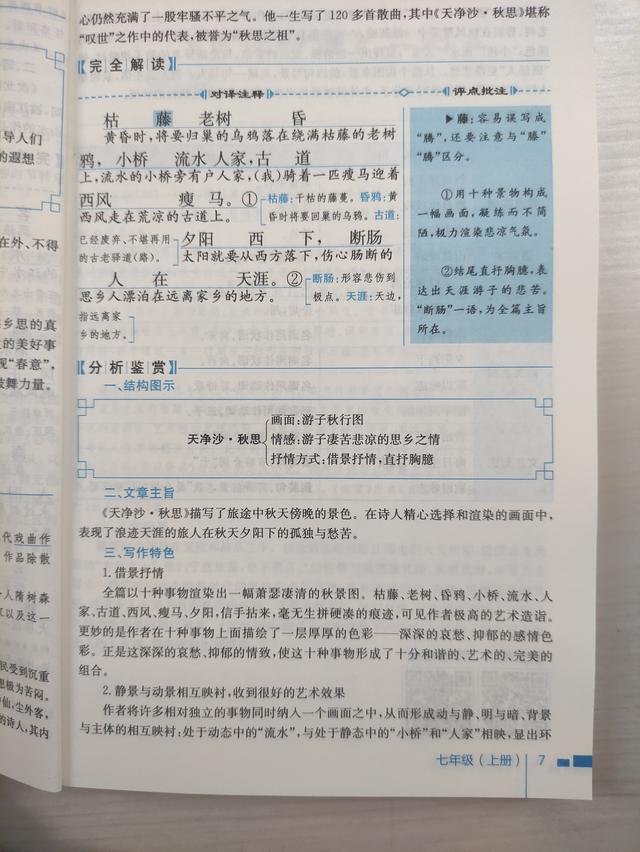 心仍然充满了一股牢骚不平之气。他一生写了120多首散曲,其中《天净沙·秋思》堪称
“叹世”之作中的代表,被誉为“秋思之祖”。
完全解读
对译注释
评点批注
枯 藤 老树 昏
黄昏时,将要归巢的乌鸦落在绕满枯藤的老树
鸦,小桥 流水 人家,古 道
上,流水的小桥旁有户人家,(我)骑着一匹瘦马迎着
西风 瘦 马。①
枯藤:干枯的藤蔓。昏鸦:黄
西风走在荒凉的古道上。
昏时将要回巢的乌鸦。古道:
已经废弃、不堪再用
的古老驿道(路)。
夕阳 西 下,断肠
太阳就要从西方落下,伤心肠断的
人 在 天涯。②
断肠:形容悲伤到
思乡人漂泊在远离家乡的地方。
极点。天涯:天边,
指远离家
乡的地方。
▶藤:容易误写成
“腾”,还要注意与“滕”
“腾”区分。
①用十种景物构成
一幅画面,凝练而不简
陋,极力渲染悲凉气氛。
②结尾直抒胸臆,表
达出天涯游子的悲苦。
“断肠”一语,为全篇主旨
所在。
分析鉴赏
一、结构图示
天净沙·秋思
画面:游子秋行图
情感:游子凄苦悲凉的思乡之情
抒情方式:借景抒情,直抒胸臆
二、文章主旨
《天净沙·秋思》描写了旅途中秋天傍晚的景色。在诗人精心选择和渲染的画面中,
表现了浪迹天涯的旅人在秋天夕阳下的孤独与愁苦。
三、写作特色
1.借景抒情
全篇以十种事物渲染出一幅萧瑟凄清的秋景图。枯藤、老树、昏鸦、小桥、流水、人
家、古道、西风、瘦马、夕阳,信手拈来,毫无生拼硬凑的痕迹,可见作者极高的艺术造诣。
更妙的是作者在十种事物上面描绘了一层厚厚的色彩——深深的哀愁、抑郁的感情色
彩。正是这深深的哀愁、抑郁的情致,使这十种事物形成了十分和谐的、艺术的、完美的
组合。
2.静景与动景相互映衬,收到很好的艺术效果
作者将许多相对独立的事物同时纳入一个画面之中,从而形成动与静、明与暗、背景
与主体的相互映衬:处于动态中的“流水”,与处于静态中的“小桥”和“人家”相映,显出环
七年级(上册) 7
导人们
的遐想
在外、不得
乡思的真
的美好事
现“春意”,
鼓舞力量。
代戏曲作
作品除散
人隋树森
以及这一
民受到沉重
想极为苦闷。
仙,尘外客,
的诗人,其内